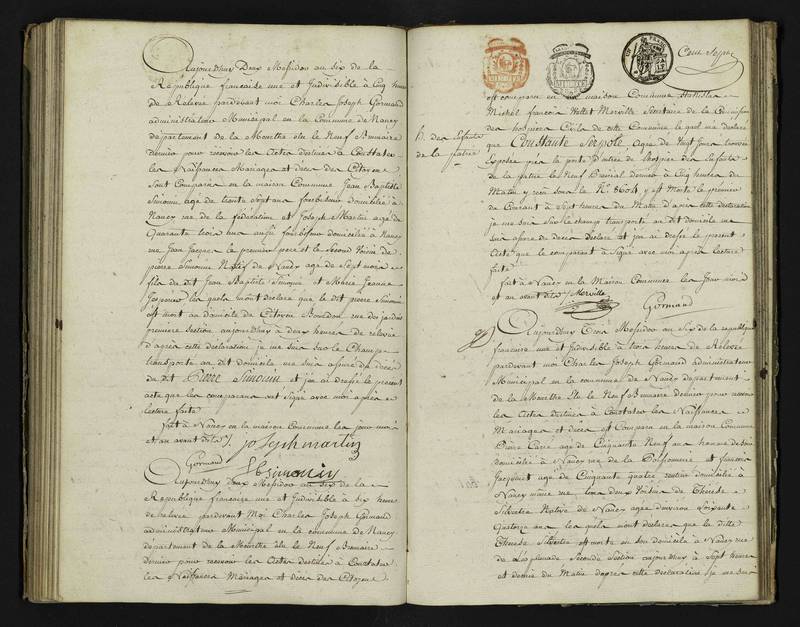 Aujourdhuy Deux Messidor an six de la
République francaise une et Indivisible à Cinq heures
De Relevée pardevant moi Charles Joseph Gormand
administrateur Municipal en la Commune de Nancy
département de la Meurthe élu le Neuf Brumaire
dernier pour recevoir les Actes destinés à Constater
les Naissances Mariages et décès des Citoyens
sont Comparus en la maison Commune Jean Baptiste
Simonin agé de trente sept ans domicilié à
Nancy rue de la fédération et Joseph Martin agé de
Quarante trois ans aussi domicilié à Nancy
rue Jean Jacques le premier pere et le second Voisin de
pierre Simonin Natif de Nancy agé de Sept mois
fils du dit Jean Baptiste Simonin et Marie Jeanne
les quels m'ont déclaré que le dit pierre Simonin
est mort au domicile du Citoyen rue des jardins
premiere section aujourdhuy à deux heures de relevée
d'après cette déclaration je me suis sur le Champ
transporté au dit domicile me suis assuré du décès
du dit Pierre Simonin et j'ai dressé le présent
acte que les comparans ont signé avec moi après
lecture faite
fait à Nancy en la maison Commune les jour mois
et an avant dits
joseph martin
Gormand
JBsimonin
Aujourdhuy deux Messidor an six de la
République française une et Indivisible à six heures
de relevée pardevant Moi Charles Joseph Gormand
administrateur Municipal en la Commune de Nancy
département de la Meurthe élu le Neuf Brumaire
dernier pour recevoir les Actes destinés à Constater
les Naissances Mariages et décès des Citoyens
est comparu en la maison Commune Stanislas
Michel françois Merville Secrétaire de la Commission
des hospices Civils de cette Commune le quel m'a déclaré
h. des Enfants
de la patrie
que Constante Serpole Agée de Vingt jours trouvée
Exposée près la porte d'entrée de l'hospice des Enfants
de la patrie le Neuf Prairial dernier à Cinq heures du
Matin y reçu sous le N° 8604 y est Morte le premier
du Courant à Sept heures du Matin d'après cette déclaration
je me suis sur le champ transporté au dit domicile me
suis assuré du décès déclaré et j'ai dressé le présent
Acte que le comparant a Signé avec moi après lecture
faite
fait à Nancy en la Maison Commune les Jour mois
et an avant dits
Merville
Gormand
Aujourdhuy Trois Messidor an Six de la république
françoise une et Indivisible à trois heures de Relevée
pardevant moi Charles Joseph Gormand administrateur
Municipal en la commune de Nancy département
de la Meurthe élu le Neuf Brumaire dernier pour recevoir
les Actes destinés à Constater les Naissances
Mariages et décès est Comparu en la maison Commune
agé de Cinquante Neuf ans
domicilié à Nancy rue de la Poissonnerie et françois
Jacquinet agé de Cinquante quatre domicilié à
Nancy même rue tous deux Voisins de Thérèse
Silvestre Native de Nancy agée d'environ Soixante
Quatorze ans les quels mont déclaré que la ditte
Thérèse Silvestre est morte en son domicile à Nancy rue
de L'esplanade Seconde Section aujourdhuy à Sept heures
et demie du Matin d'après cette déclaration je me suis